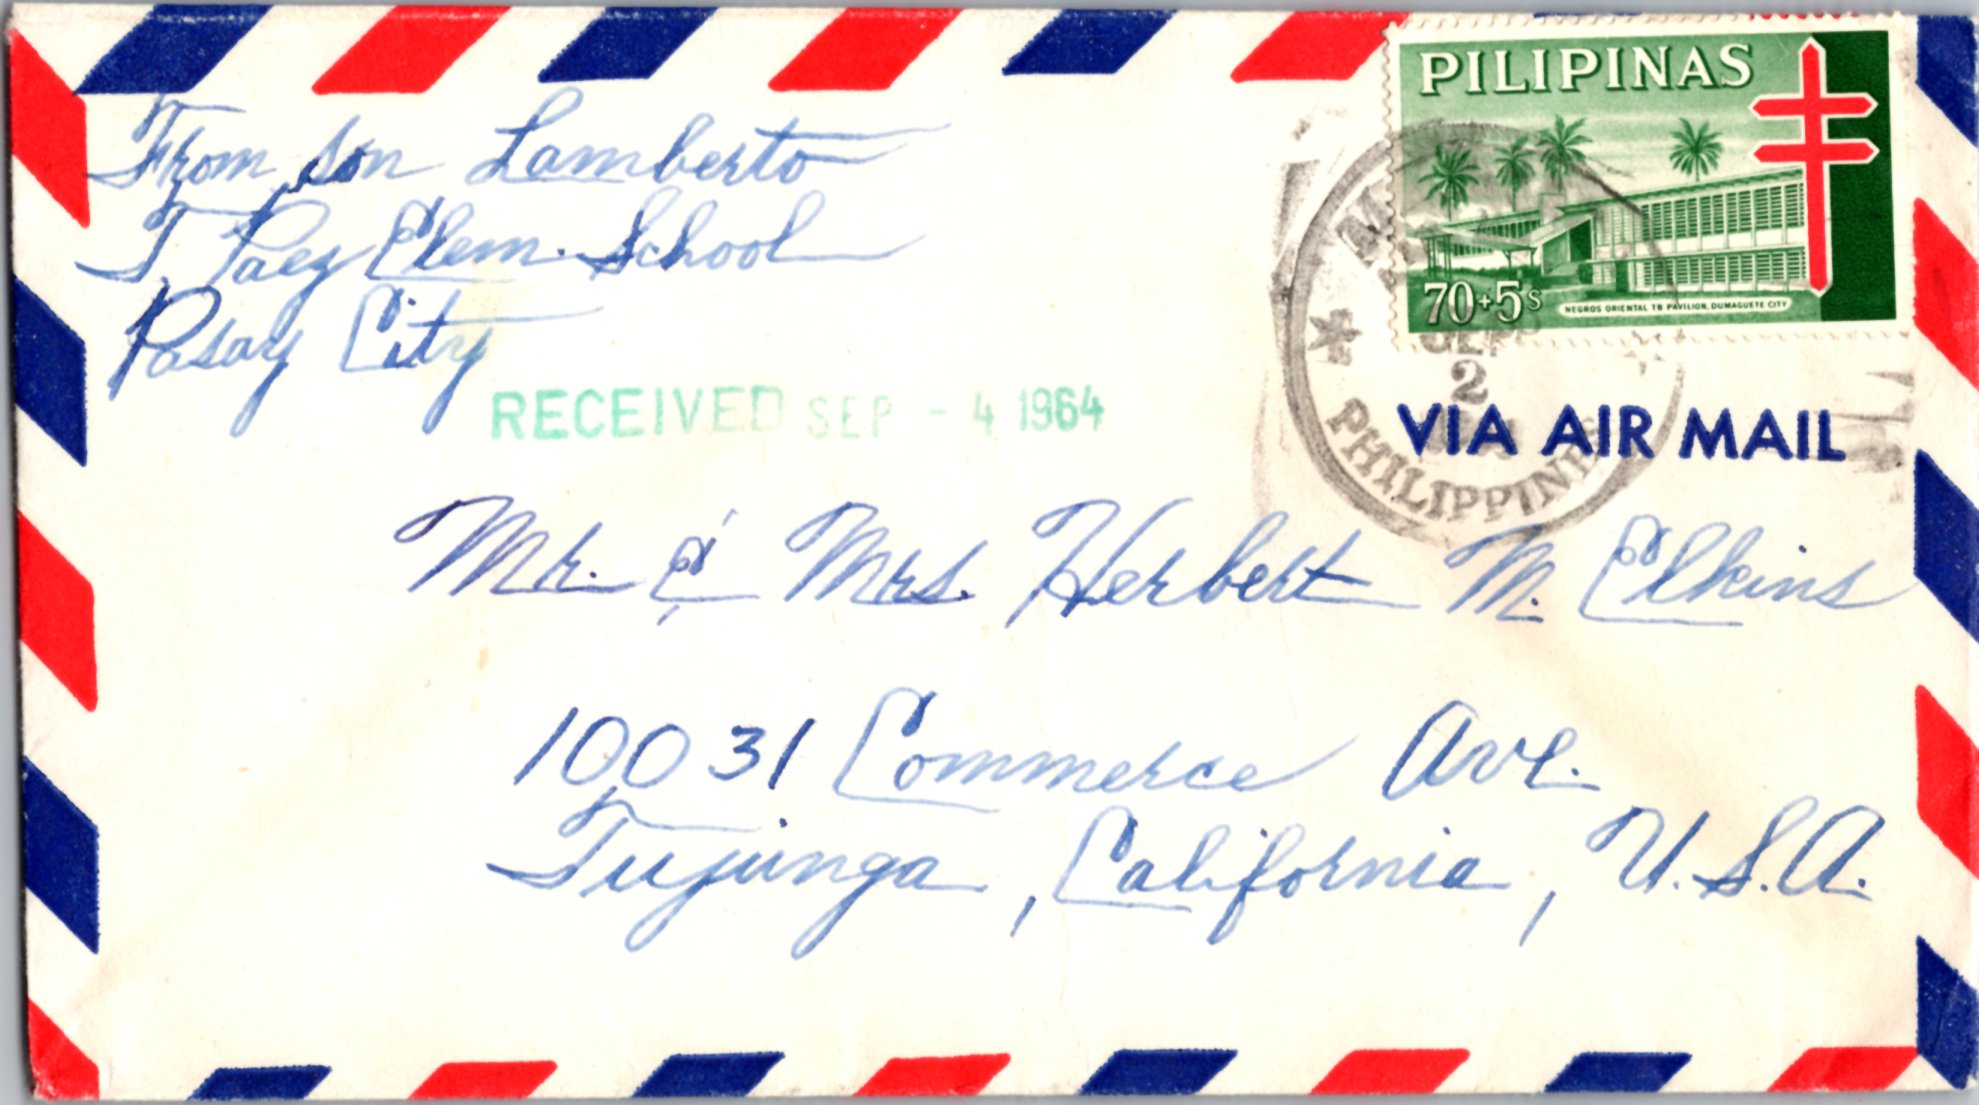 From son Lamberto
T. Paez Elem. School
Pasay City
PILIPINAS
70+5s
NEGROS ORIENTAL TB PAVILION, DUMAGUETE CITY
SEP
2
PHILIPPINES
RECEIVED SEP - 4 1964
VIA AIR MAIL
Mr. & Mrs. Herbert M. Elkins
10031 Commerce Ave.
Tujunga, California, U.S.A.